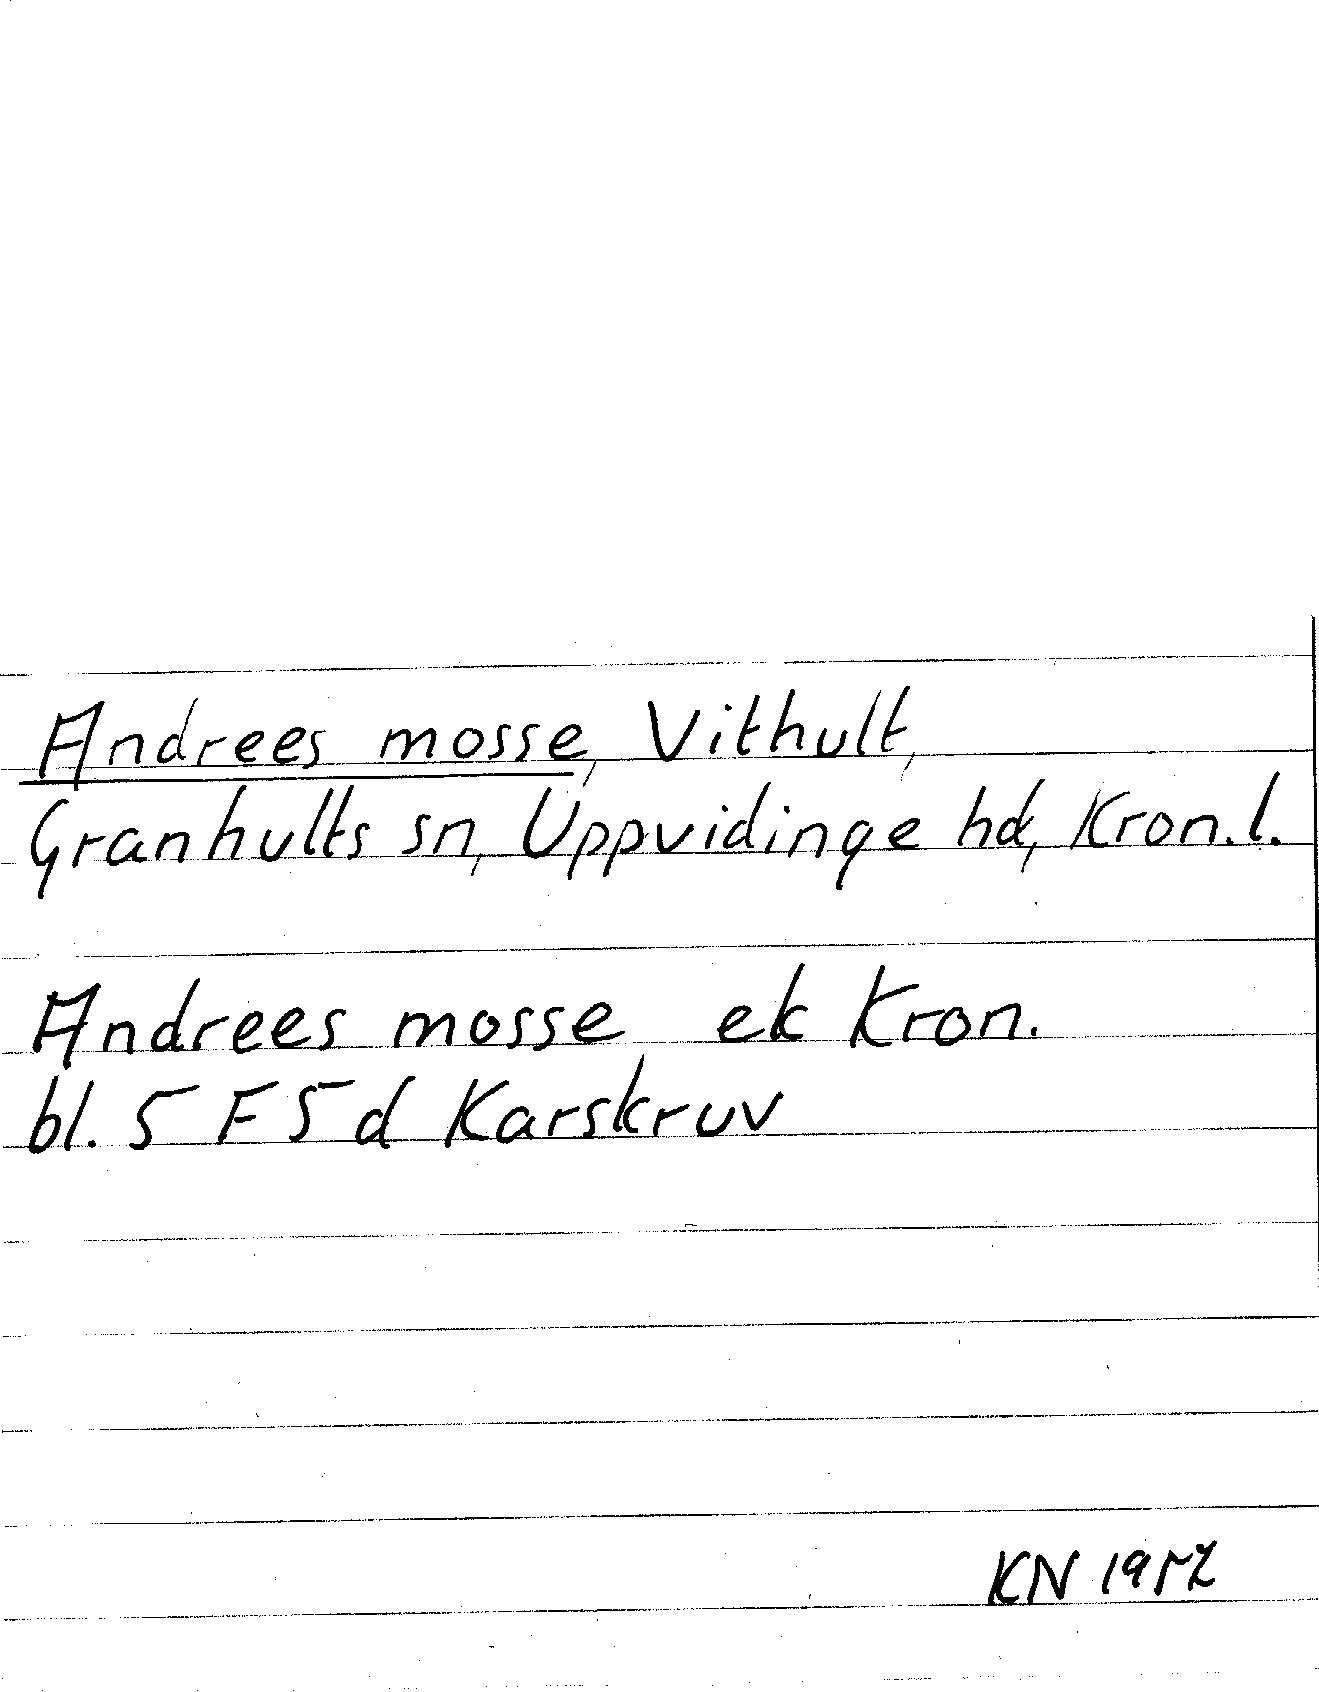 Andrees mosse, Vithult,
Granhults sn, Uppvidinge hd, Kron.l.
Andrees mosse, ek Kron.
bl. 5 F 5 d Karskruv
KN 1952